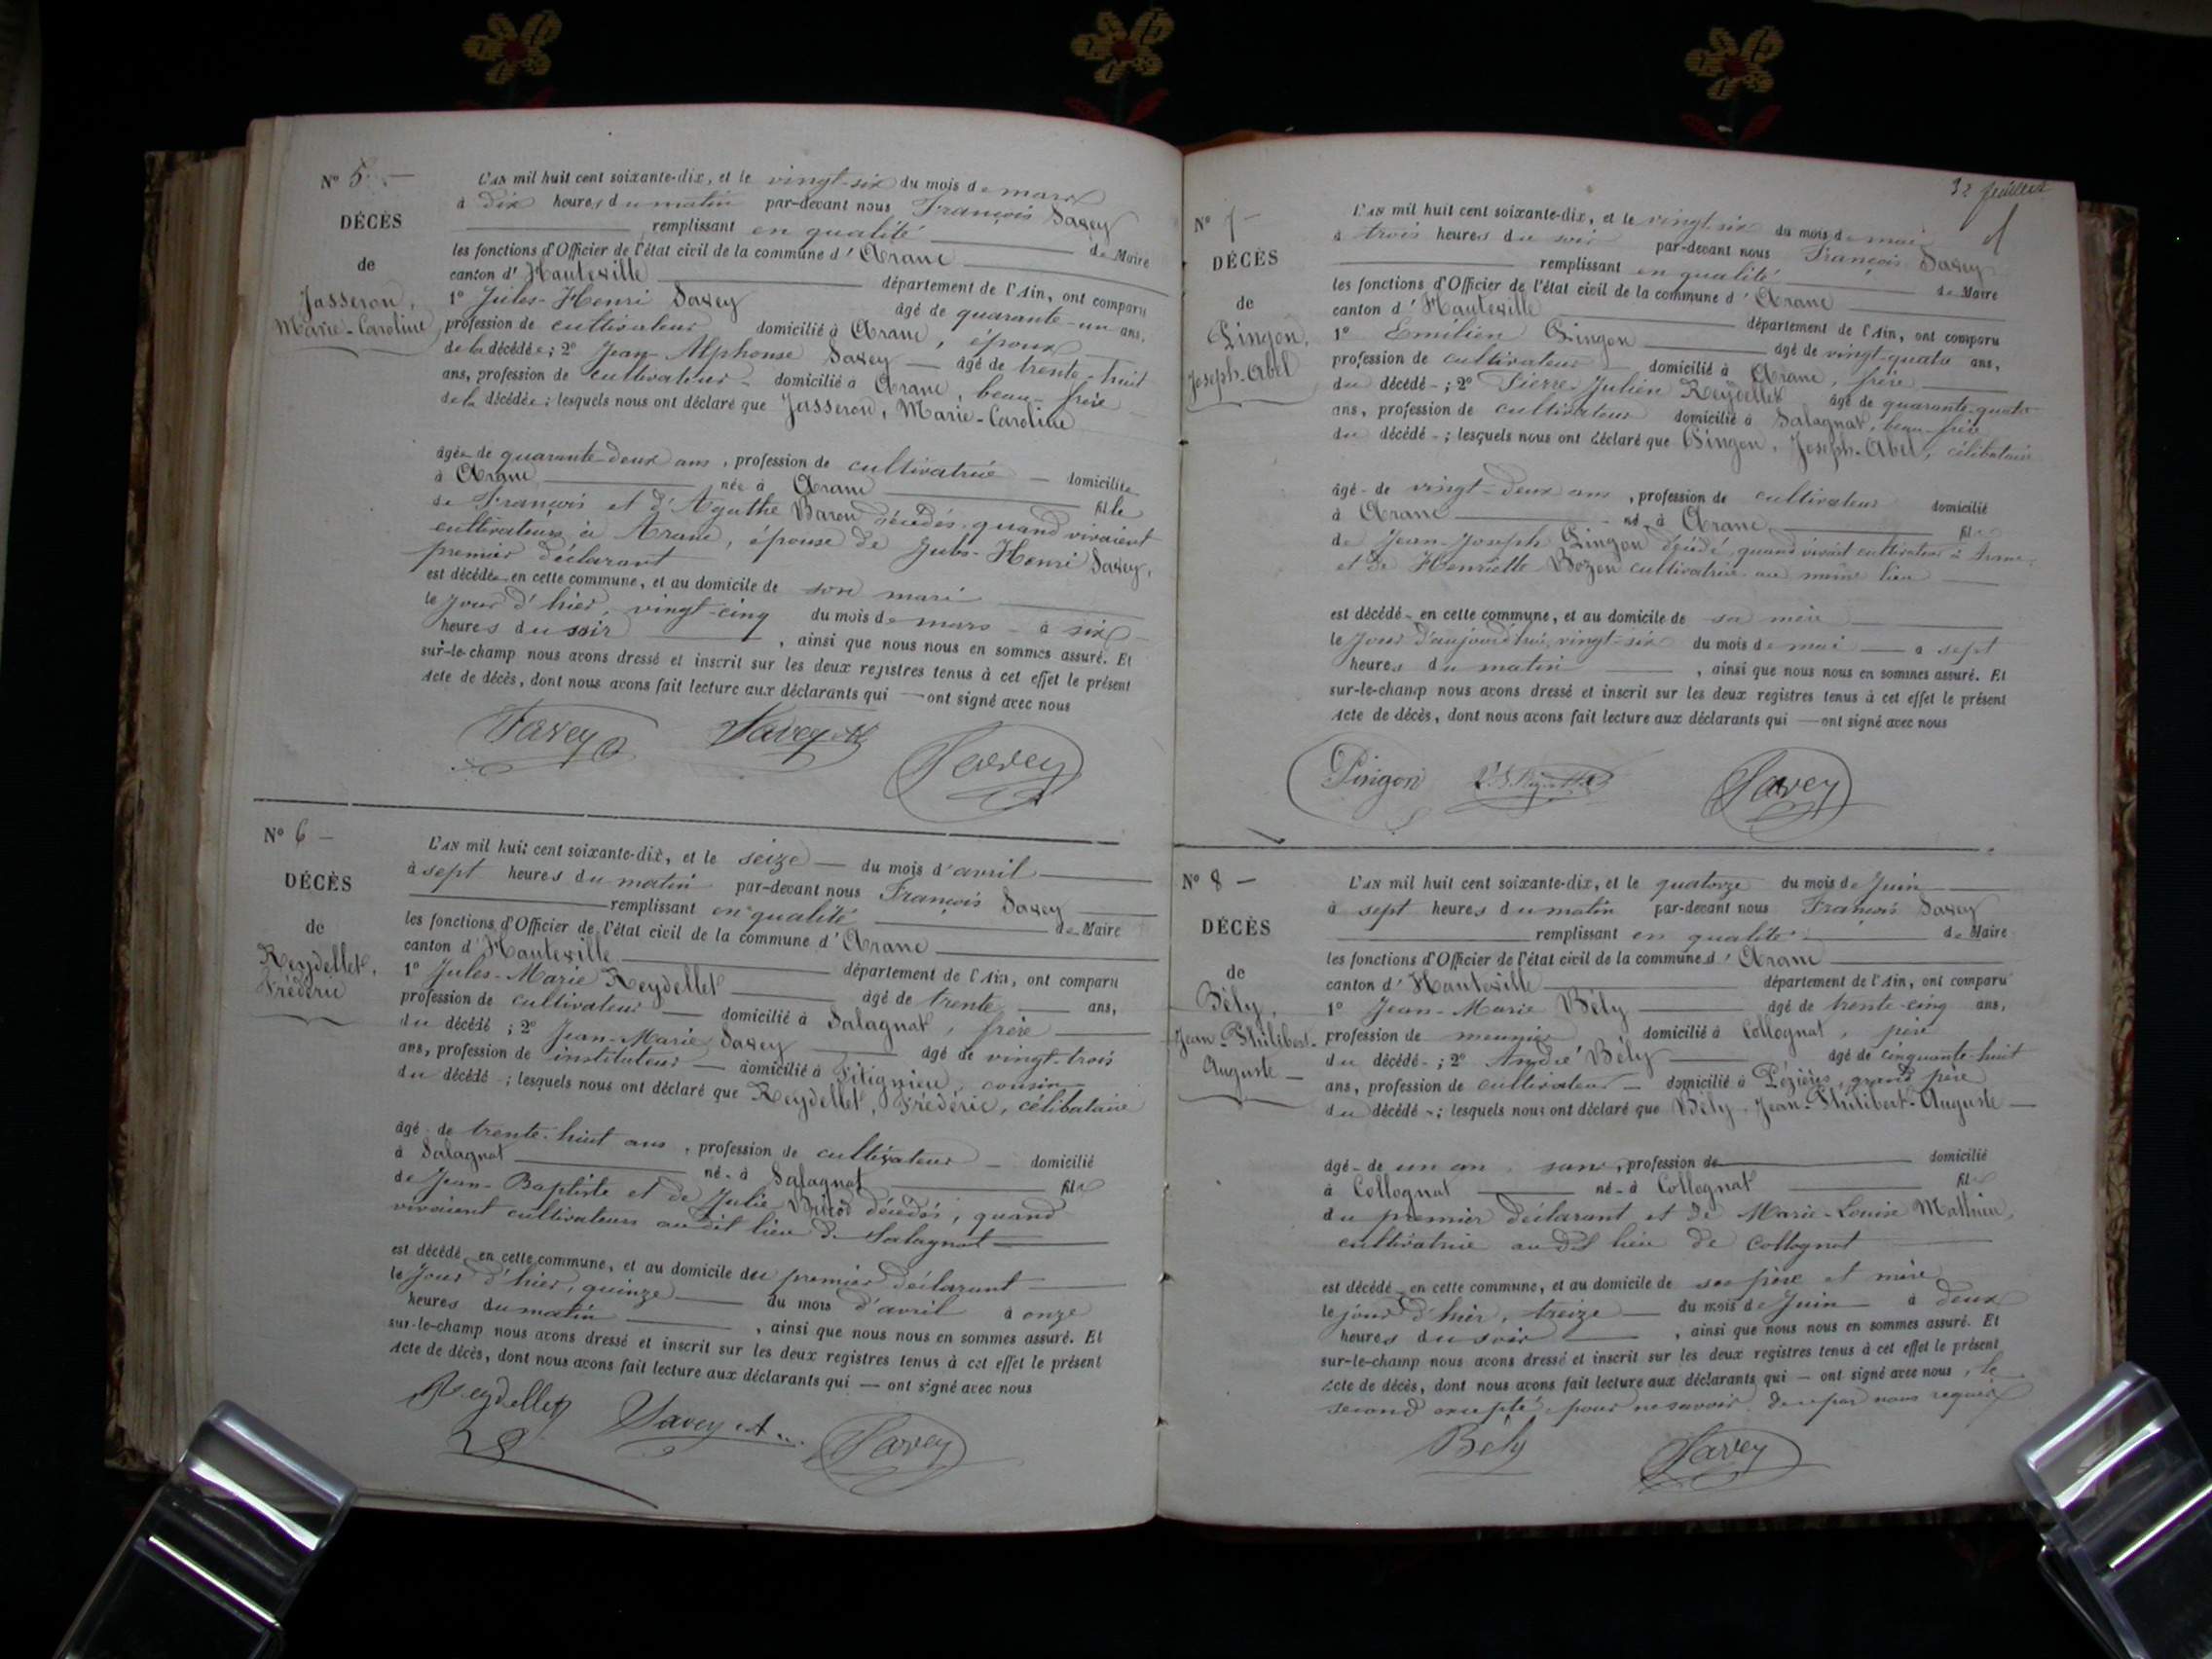 N° 5. —
DÉCÈS
de
Jasseron,
Marie-Caroline
L'AN mil huit cent soixante-dix, et le vingt-six du mois de mars
à dix heures du matin par-devant nous François Savey
remplissant en qualité de Maire
les fonctions d'Officier de l'état civil de la commune d' Aranc
canton d' Hauteville département de l'Ain, ont comparu
1° Jules-Henri Savey âgé de quarante-un ans,
profession de cultivateur domicilié à Aranc, époux
de la décédée; 2° Jean-Alphonse Savey — âgé de trente-huit
ans, profession de cultivateur - domicilié à Aranc, beau-frère
de la décédée; lesquels nous ont déclaré que Jasseron, Marie-Caroline
âgée de quarante-deux ans, profession de cultivatrice — domiciliée
à Aranc née à Aranc fille
de François et d'Agathe Baron décédés, quand vivaient
cultivateurs à Aranc, épouse de Jules-Henri Savey,
premier déclarant
est décédée en cette commune, et au domicile de son mari
le jour d'hier, vingt-cinq du mois de mars - à six
heures du soir, ainsi que nous nous en sommes assuré. Et
sur-le-champ nous avons dressé et inscrit sur les deux registres tenus à cet effet le présent
Acte de décès, dont nous avons fait lecture aux déclarants qui — ont signé avec nous
Savey Savey Savey
N° 6 —
DÉCÈS
de
Reydellet,
Frédéric
L'AN mil huit cent soixante-dix, et le seize — du mois d'avril
à sept heures du matin par-devant nous François Savey
remplissant en qualité de Maire
les fonctions d'Officier de l'état civil de la commune d' Aranc
canton d' Hauteville département de l'Ain, ont comparu
1° Jules-Marie Reydellet âgé de trente ans,
profession de cultivateur — domicilié à Salagnat, frère
du décédé; 2° Jean-Marie Savey âgé de vingt-trois
ans, profession de instituteur — domicilié à Fitignieu, cousin
du décédé; lesquels nous ont déclaré que Reydellet, Frédéric, célibataire
âgé de trente-huit ans, profession de cultivateur — domicilié
à Salagnat né à Salagnat fils
de Jean-Baptiste et de Julie décédés, quand
vivaient cultivateurs au dit lieu de Salagnat
est décédé en cette commune, et au domicile du premier déclarant
le jour d'hier, quinze — du mois d'avril à onze
heures du matin, ainsi que nous nous en sommes assuré. Et
sur-le-champ nous avons dressé et inscrit sur les deux registres tenus à cet effet le présent
Acte de décès, dont nous avons fait lecture aux déclarants qui — ont signé avec nous
Reydellet Savey Savey
32 feuillet
N° 7
DÉCÈS
de
Pingon,
Joseph-Abel
L'AN mil huit cent soixante-dix, et le vingt-six du mois de mai
à trois heures du soir par-devant nous François Savey
remplissant en qualité de Maire
les fonctions d'Officier de l'état civil de la commune d' Aranc
canton d' Hauteville département de l'Ain, ont comparu
1° Emilien Pingon âgé de vingt-quatre ans,
profession de cultivateur domicilié à Aranc, frère
du décédé -; 2° Pierre-Julien Reydellet âgé de quarante-quatre
ans, profession de cultivateur domicilié à Salagnat, beau-frère
du décédé -; lesquels nous ont déclaré que Pingon, Joseph-Abel, célibataire
âgé - de vingt-deux ans, profession de cultivateur domicilié
à Aranc né à Aranc fils
de Jean-Joseph Pingon décédé, quand vivait cultivateur à Aranc,
et de Henriette Bozon cultivatrice au même lieu
est décédé - en cette commune, et au domicile de sa mère
le jour d'aujourd'hui, vingt-six du mois de mai — à sept
heures du matin, ainsi que nous nous en sommes assuré. Et
sur-le-champ nous avons dressé et inscrit sur les deux registres tenus à cet effet le présent
Acte de décès, dont nous avons fait lecture aux déclarants qui — ont signé avec nous
Pingon Savey
N° 8 —
DÉCÈS
de
Bély,
Jean-Philibert-
Auguste —
L'AN mil huit cent soixante-dix, et le quatorze du mois de Juin
à sept heures du matin par-devant nous François Savey
remplissant en qualité de Maire
les fonctions d'Officier de l'état civil de la commune d' Aranc
canton d' Hauteville département de l'Ain, ont comparu
1° Jean-Marie Bély âgé de trente-cinq ans,
profession de meunier domicilié à Collognat, père
du décédé -; 2° André Bély âgé de cinquante-huit
ans, profession de cultivateur — domicilié à Pézières, grand père
du décédé -; lesquels nous ont déclaré que Bély, Jean-Philibert-Auguste —
âgé - de un an, sans, profession de domicilié
à Collognat né - à Collognat fils
du premier déclarant et de Marie-Louise Mathieu,
cultivatrice au dit lieu de Collognat
est décédé en cette commune, et au domicile de ses père et mère
le jour d'hier, treize — du mois de Juin à deux
heures du soir, ainsi que nous nous en sommes assuré. Et
sur-le-champ nous avons dressé et inscrit sur les deux registres tenus à cet effet le présent
Acte de décès, dont nous avons fait lecture aux déclarants qui — ont signé avec nous, le
second excepté pour ne savoir, de ce par nous requis
Bély Savey